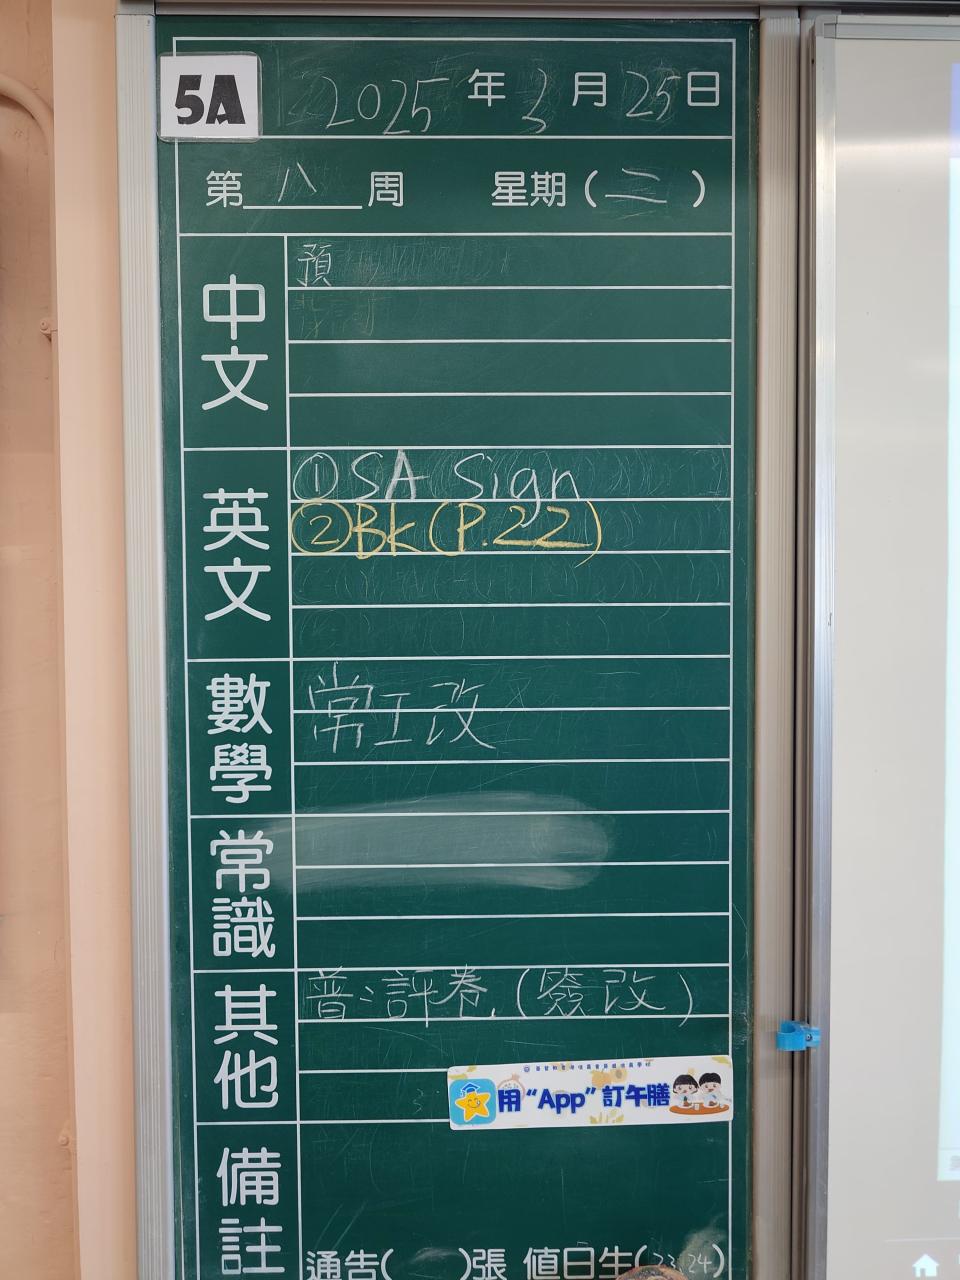 5A
2025年3月25日
第八周 星期(二)
中文
預
英文
①SA Sign
②Bk(P.22)
數學
常工改
常識
其他
普:評卷(簽改)
用“App”訂午膳
備註
通告( )張 值日生(23,24)